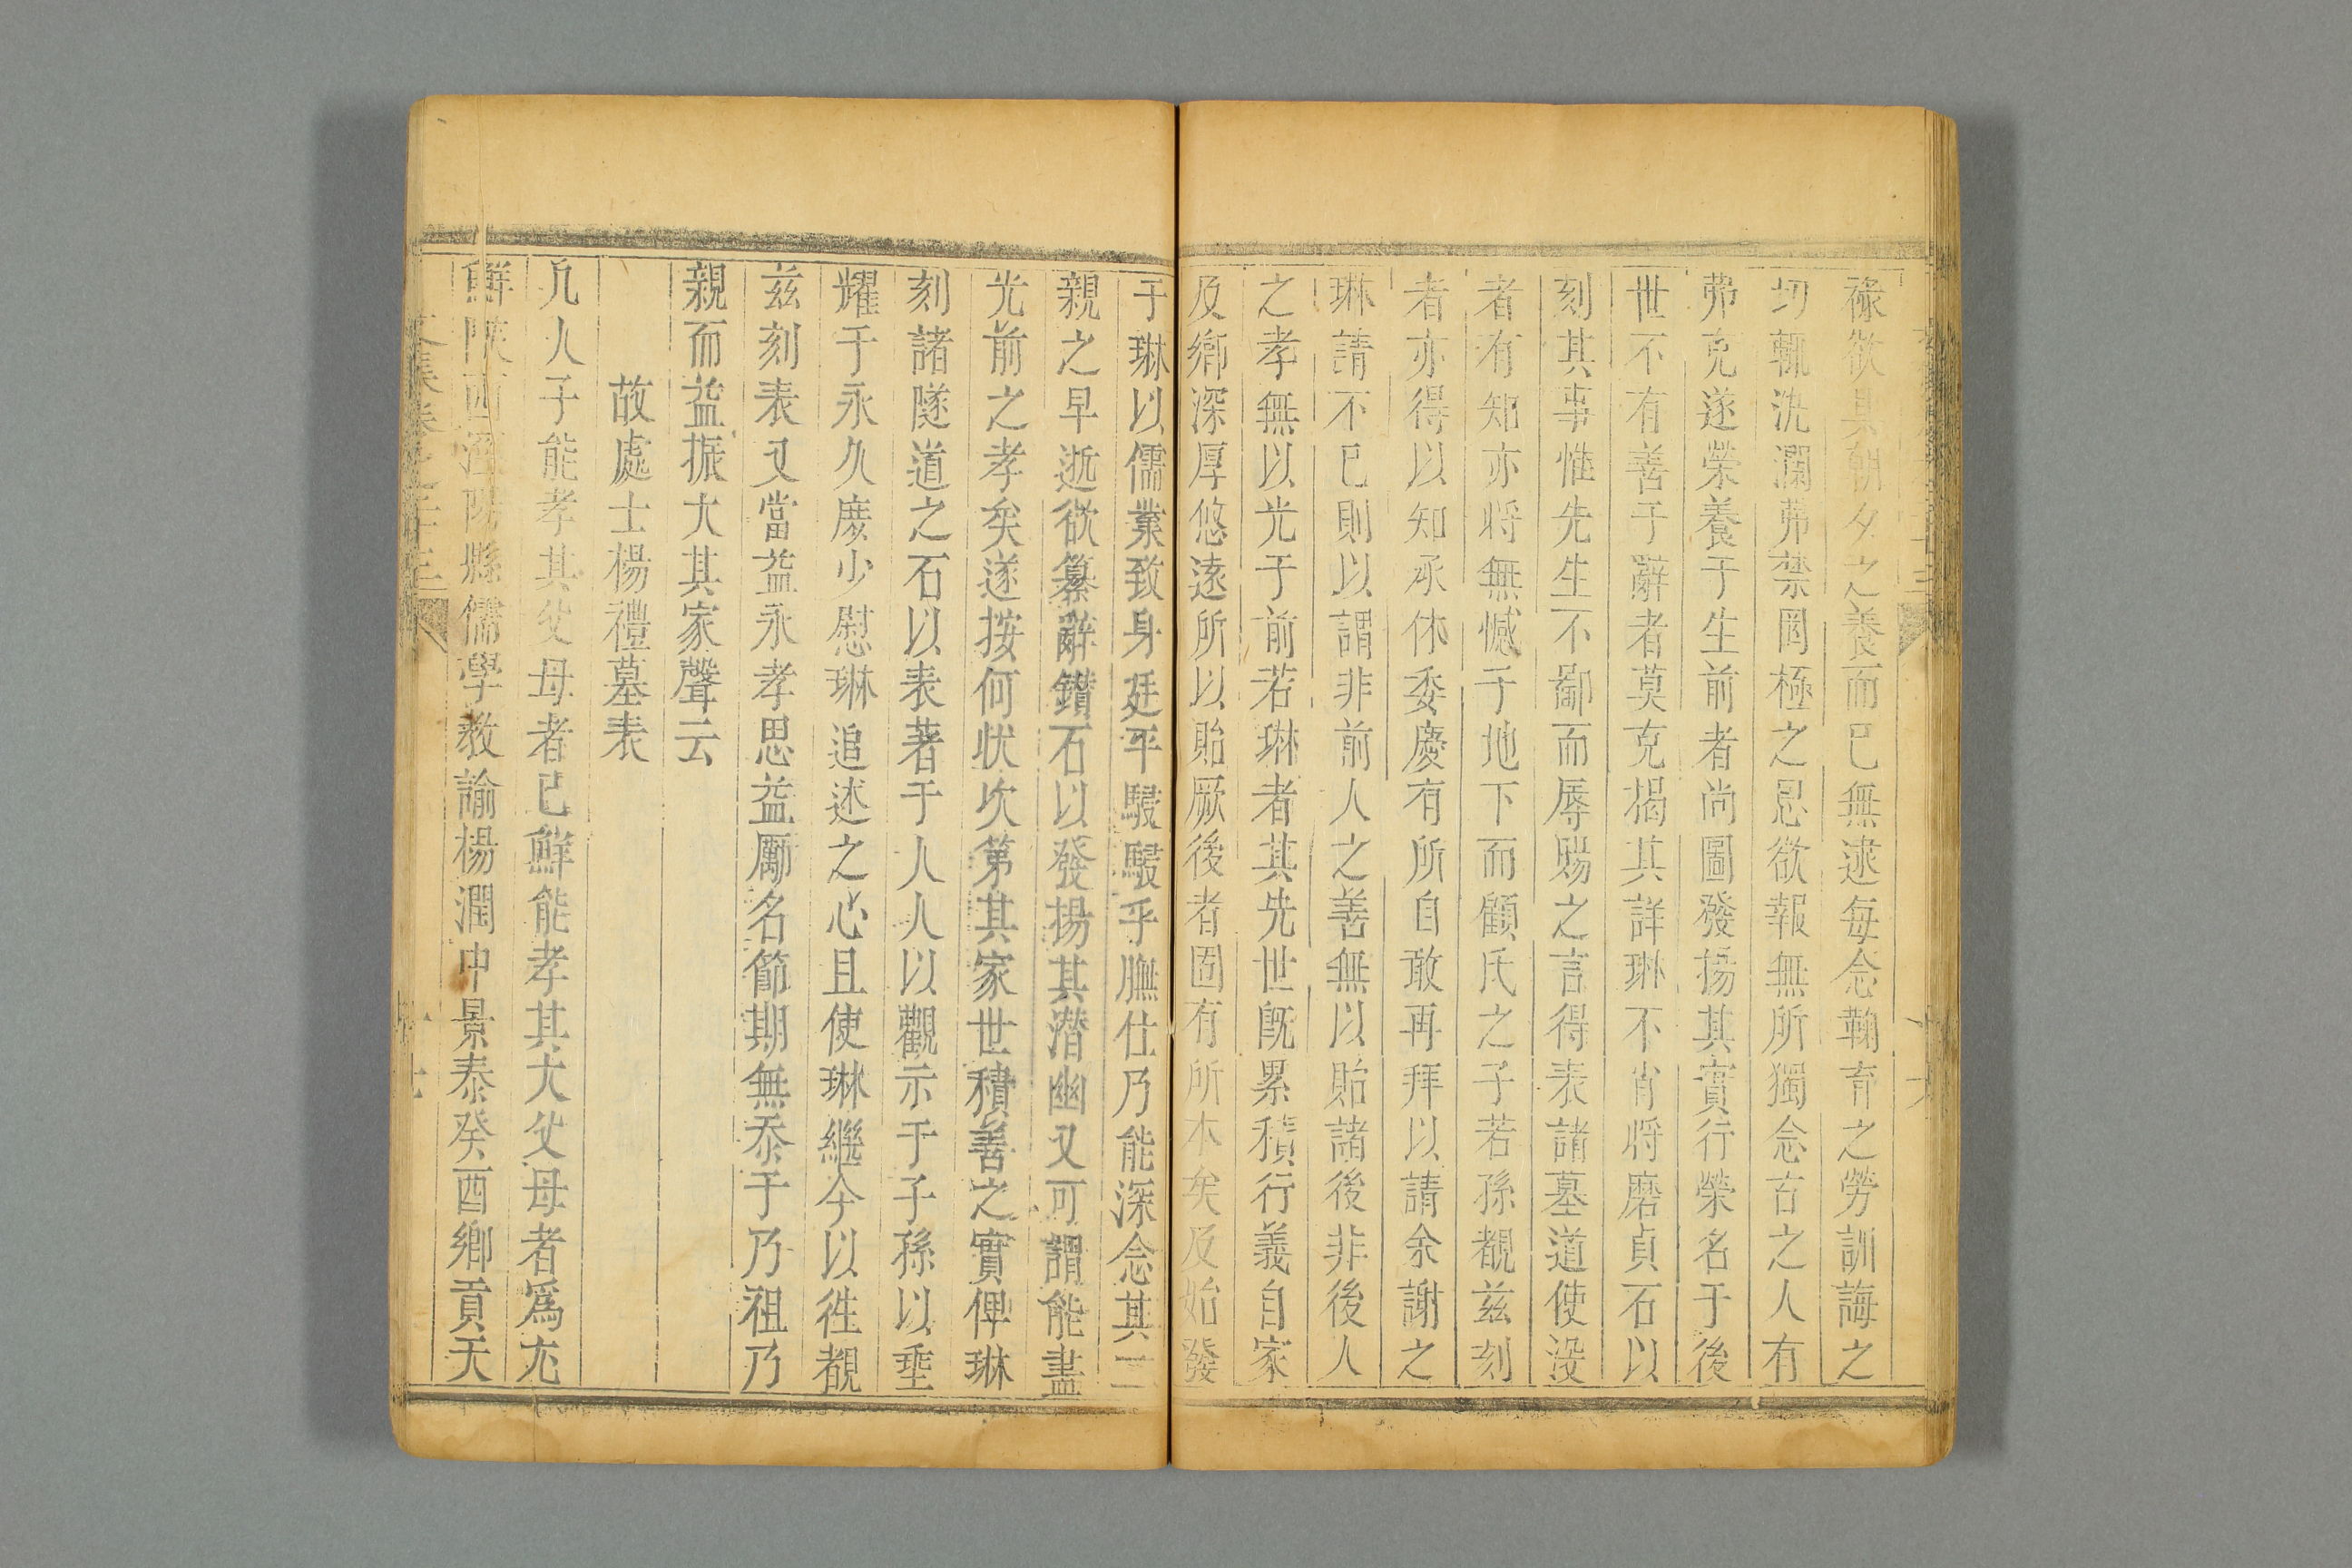 祿欲具朝夕之養而已無逮每念鞠育之勞訓誨之
切輒洗瀾弗禁罔極之恩欲報無所獨念古之人有
弗克遂榮養于生前者尚圖發揚其實行榮名于後
世不有善于辭者莫克揭其詳琳不肖将磨貞石以
刻其事惟先生不鄙而辱賜之言得表諸墓道使没
者有知亦将無憾于地下而顧氏之子若孫覩兹刻
者亦得以知承休委慶有所自敢再拜以請余謝之
琳請不已則以謂非前人之善無以貽諸後非後人
之孝無以光于前若琳者其先世既累積行義自家
及鄉深厚悠遠所以貽厥後者固有所本矣及始發
于琳以儒業致身廷平駸駸乎膴仕乃能深念其二
親之早逝欲纂辭鑽石以發揚其潜幽又可謂能盡
光前之孝矣遂按何状次第其家世積善之實俾琳
刻諸隧道之石以表著于人人以觀示于子孫以垂
耀于永久庶少慰琳追述之心且使琳繼今以徃覩
兹刻表又當益永孝思益勵名節期無忝于乃祖乃
親而益振大其家聲云
故處士楊禮墓表
凡人子能孝其父母者已鮮能孝其大父母者爲尤
鮮陜西涇陽縣儒學教諭楊潤中景泰癸酉鄉貢天
文集卷之二十三
十七